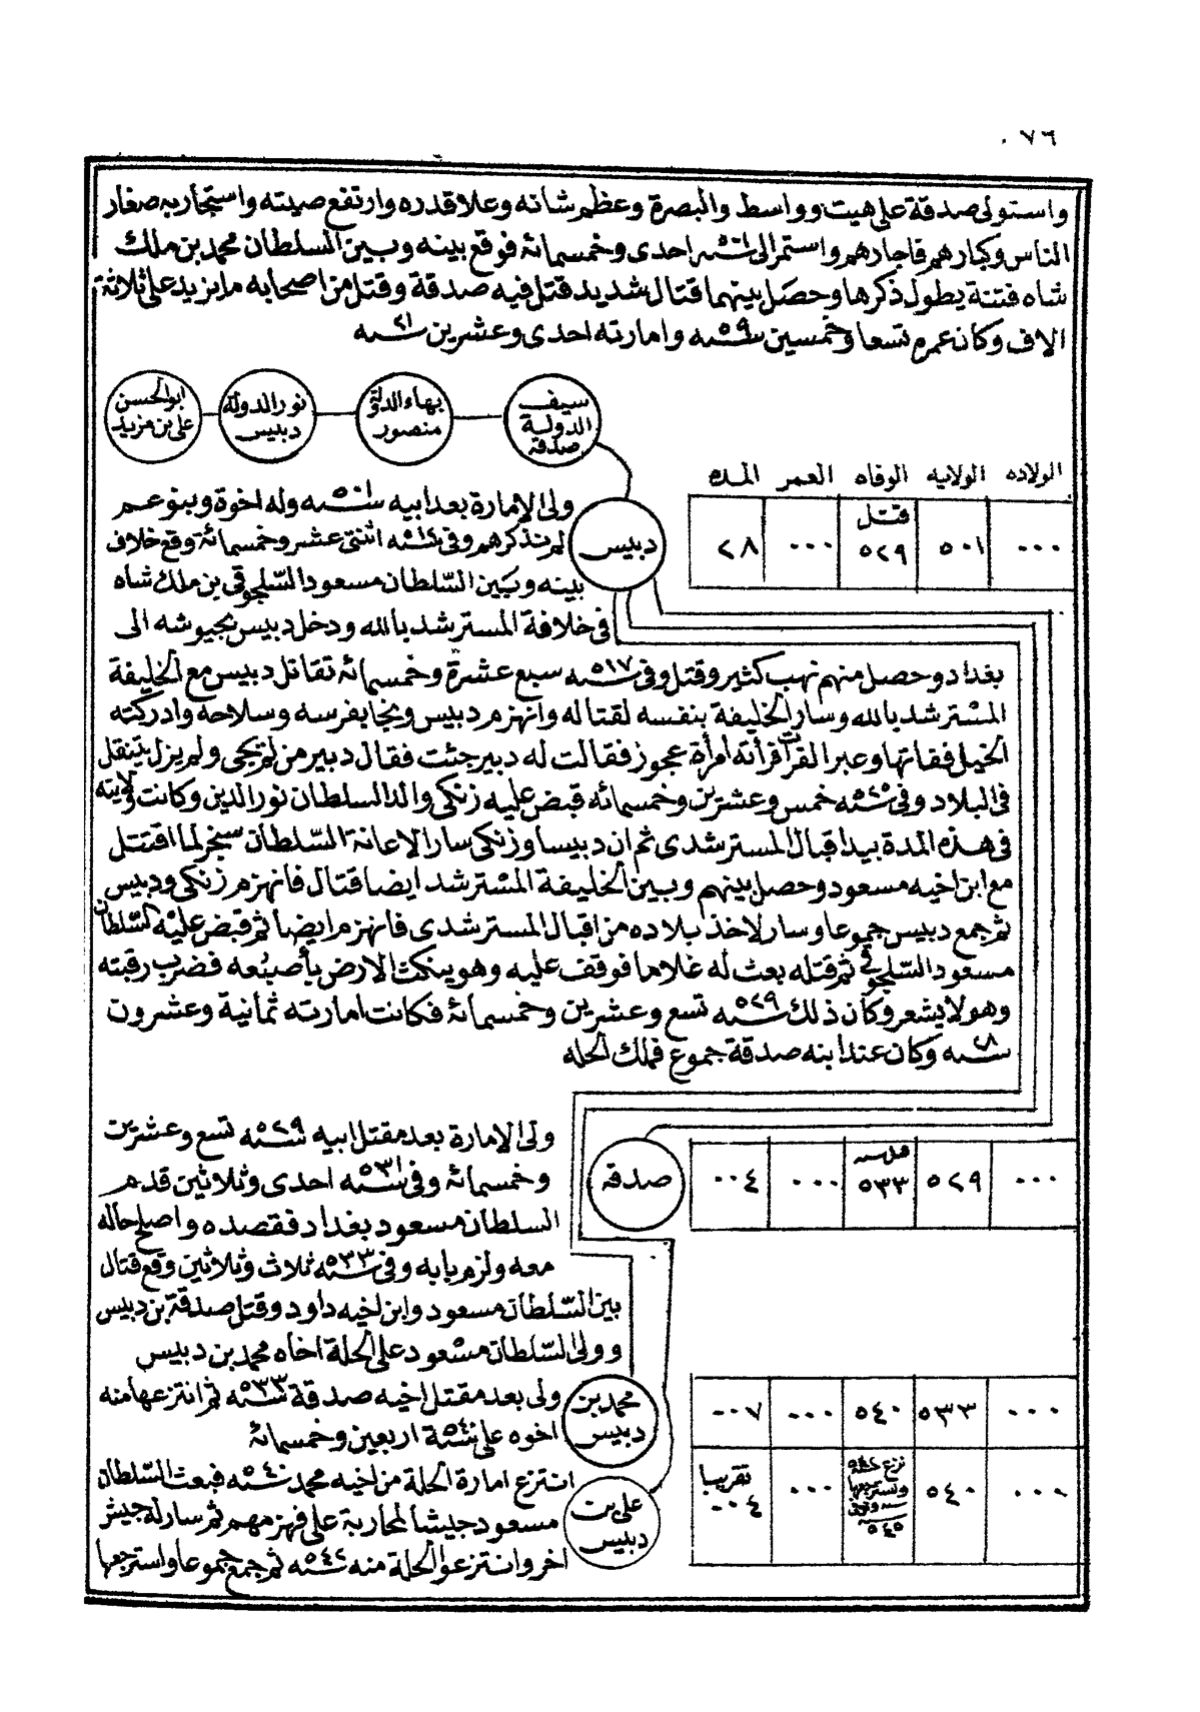 ٠٧٦
واستولى صدقة على هيت وواسط والبصرة وعظم شانه وعلا قدره وارتفع صيته واستجار به صغار
الناس وكبارهم فاجارهم واستمر الى سنة ٥٠١ احدى وخمسمائة فوقع بينه وبين السلطان محمد بن ملك
شاه فتنة يطول ذكرها وحصل بينهما قتال شديد قتل فيه صدقة وقتل من اصحابه ما يزيد على ثلاثة
الاف وكان عمره تسعا وخمسين سنه ٥٩ وامارته احدى وعشرين سنه ٢١
سيف الدولة صدقة
بهاء الدولة منصور
نور الدولة دبيس
ابو الحسن على بن مزيد
الولاده الولايه الوفاه العمر المده
٠٠٠ ٥٠١ قتل ٥٢٩ ٠٠٠ ٢٨
دبيس
ولى الامارة بعد ابيه سنه ٥٠١ وله اخوة وبنو عم
لم نذكرهم وفى سنه ٥١٢ اثنتى عشر وخمسمائة وقع خلاف
بينه وبين السّلطان مسعود السّلجوقى بن ملك شاه
فى خلافة المسترشد بالله ودخل دبيس بجيوشه الى
بغداد وحصل منهم نهب كثير وقتل وفى سنه ٥١٧ سبع عشرة وخمسمائة تقاتل دبيس مع الخليفة
المسترشد بالله وسار الخليفة بنفسه لقتاله وانهزم دبيس ونجا بفرسه وسلاحه وادركته
الخيل ففاتها وعبر الفرات فرأته امرأة عجوز فقالت له دبير جئت فقال دبير من لم يجى ولم يزل يتنقل
فى البلاد وفى سنه ٥٢٥ خمس وعشرين وخمسمائه قبض عليه زنكى والد السلطان نور الدين وكانت ولايته
فى هذه المدة بيد اقبال المسترشدى ثم ان دبيسا وزنكى سارا لاعانة السّلطان سنجر لما اقتتل
مع ابن اخيه مسعود وحصل بينهم وبين الخليفة المسترشد ايضا قتال فانهزم زنكى ودبيس
ثم جمع دبيس جموعا وسار لاخذ بلاده من اقبال المسترشدى فانهزم ايضا ثم قبض عليه السّلطان
مسعود السّلجوقى ثم قتله بعث له غلاما فوقف عليه وهو ينكت الارض بأصبعه فضرب رقبته
وهو لا يشعر وكان ذلك سنه ٥٢٩ تسع وعشرين وخمسمائة فكانت امارته ثمانية وعشرون
سنه ٢٨ وكان عند ابنه صدقة جموع فملك الحله
٠٠٠ ٥٢٩ ٥٣٣ ٠٠٠ ٠٠٤
صدقه
ولى الامارة بعد مقتل ابيه سنه ٥٢٩ تسع وعشرين
وخمسمائة وفى سنه ٥٣١ احدى وثلاثين قدم
السلطان مسعود بغداد فقصده واصلح حاله
معه ولزم بابه وفى سنه ٥٣٣ ثلاث وثلاثين وقع قتال
بين السّلطان مسعود وابن اخيه داود وقتل صدقة بن دبيس
وولى السّلطان مسعود على الحلة اخاه محمد بن دبيس
٠٠٠ ٥٣٣ ٥٤٠ ٠٠٠ ٠٠٧
محمد بن دبيس
ولى بعد مقتل اخيه صدقة سنه ٥٣٣ ثم انتزعها منه
اخوه على سنة ٥٤٠ اربعين وخمسمائة
٠٠٠ ٥٤٠ نزع واسترجعها وتوفى سنه ٥٤٥ ٠٠٠ تقريبا ٠٠٤
على بن دبيس
انتزع امارة الحلة من اخيه محمد سنه ٥٤٠ فبعث السّلطان
مسعود جيشا لمحاربة على فهزمهم ثم سار له جيش
اخر وانتزعوا الحلة منه سنه ٥٤٢ ثم جمع جموعا واسترجعها